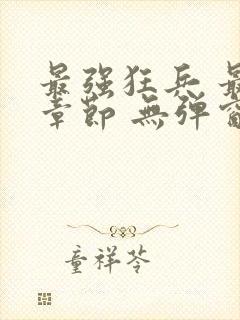 最强狂兵 最
章節 無弹窗
童祥苓